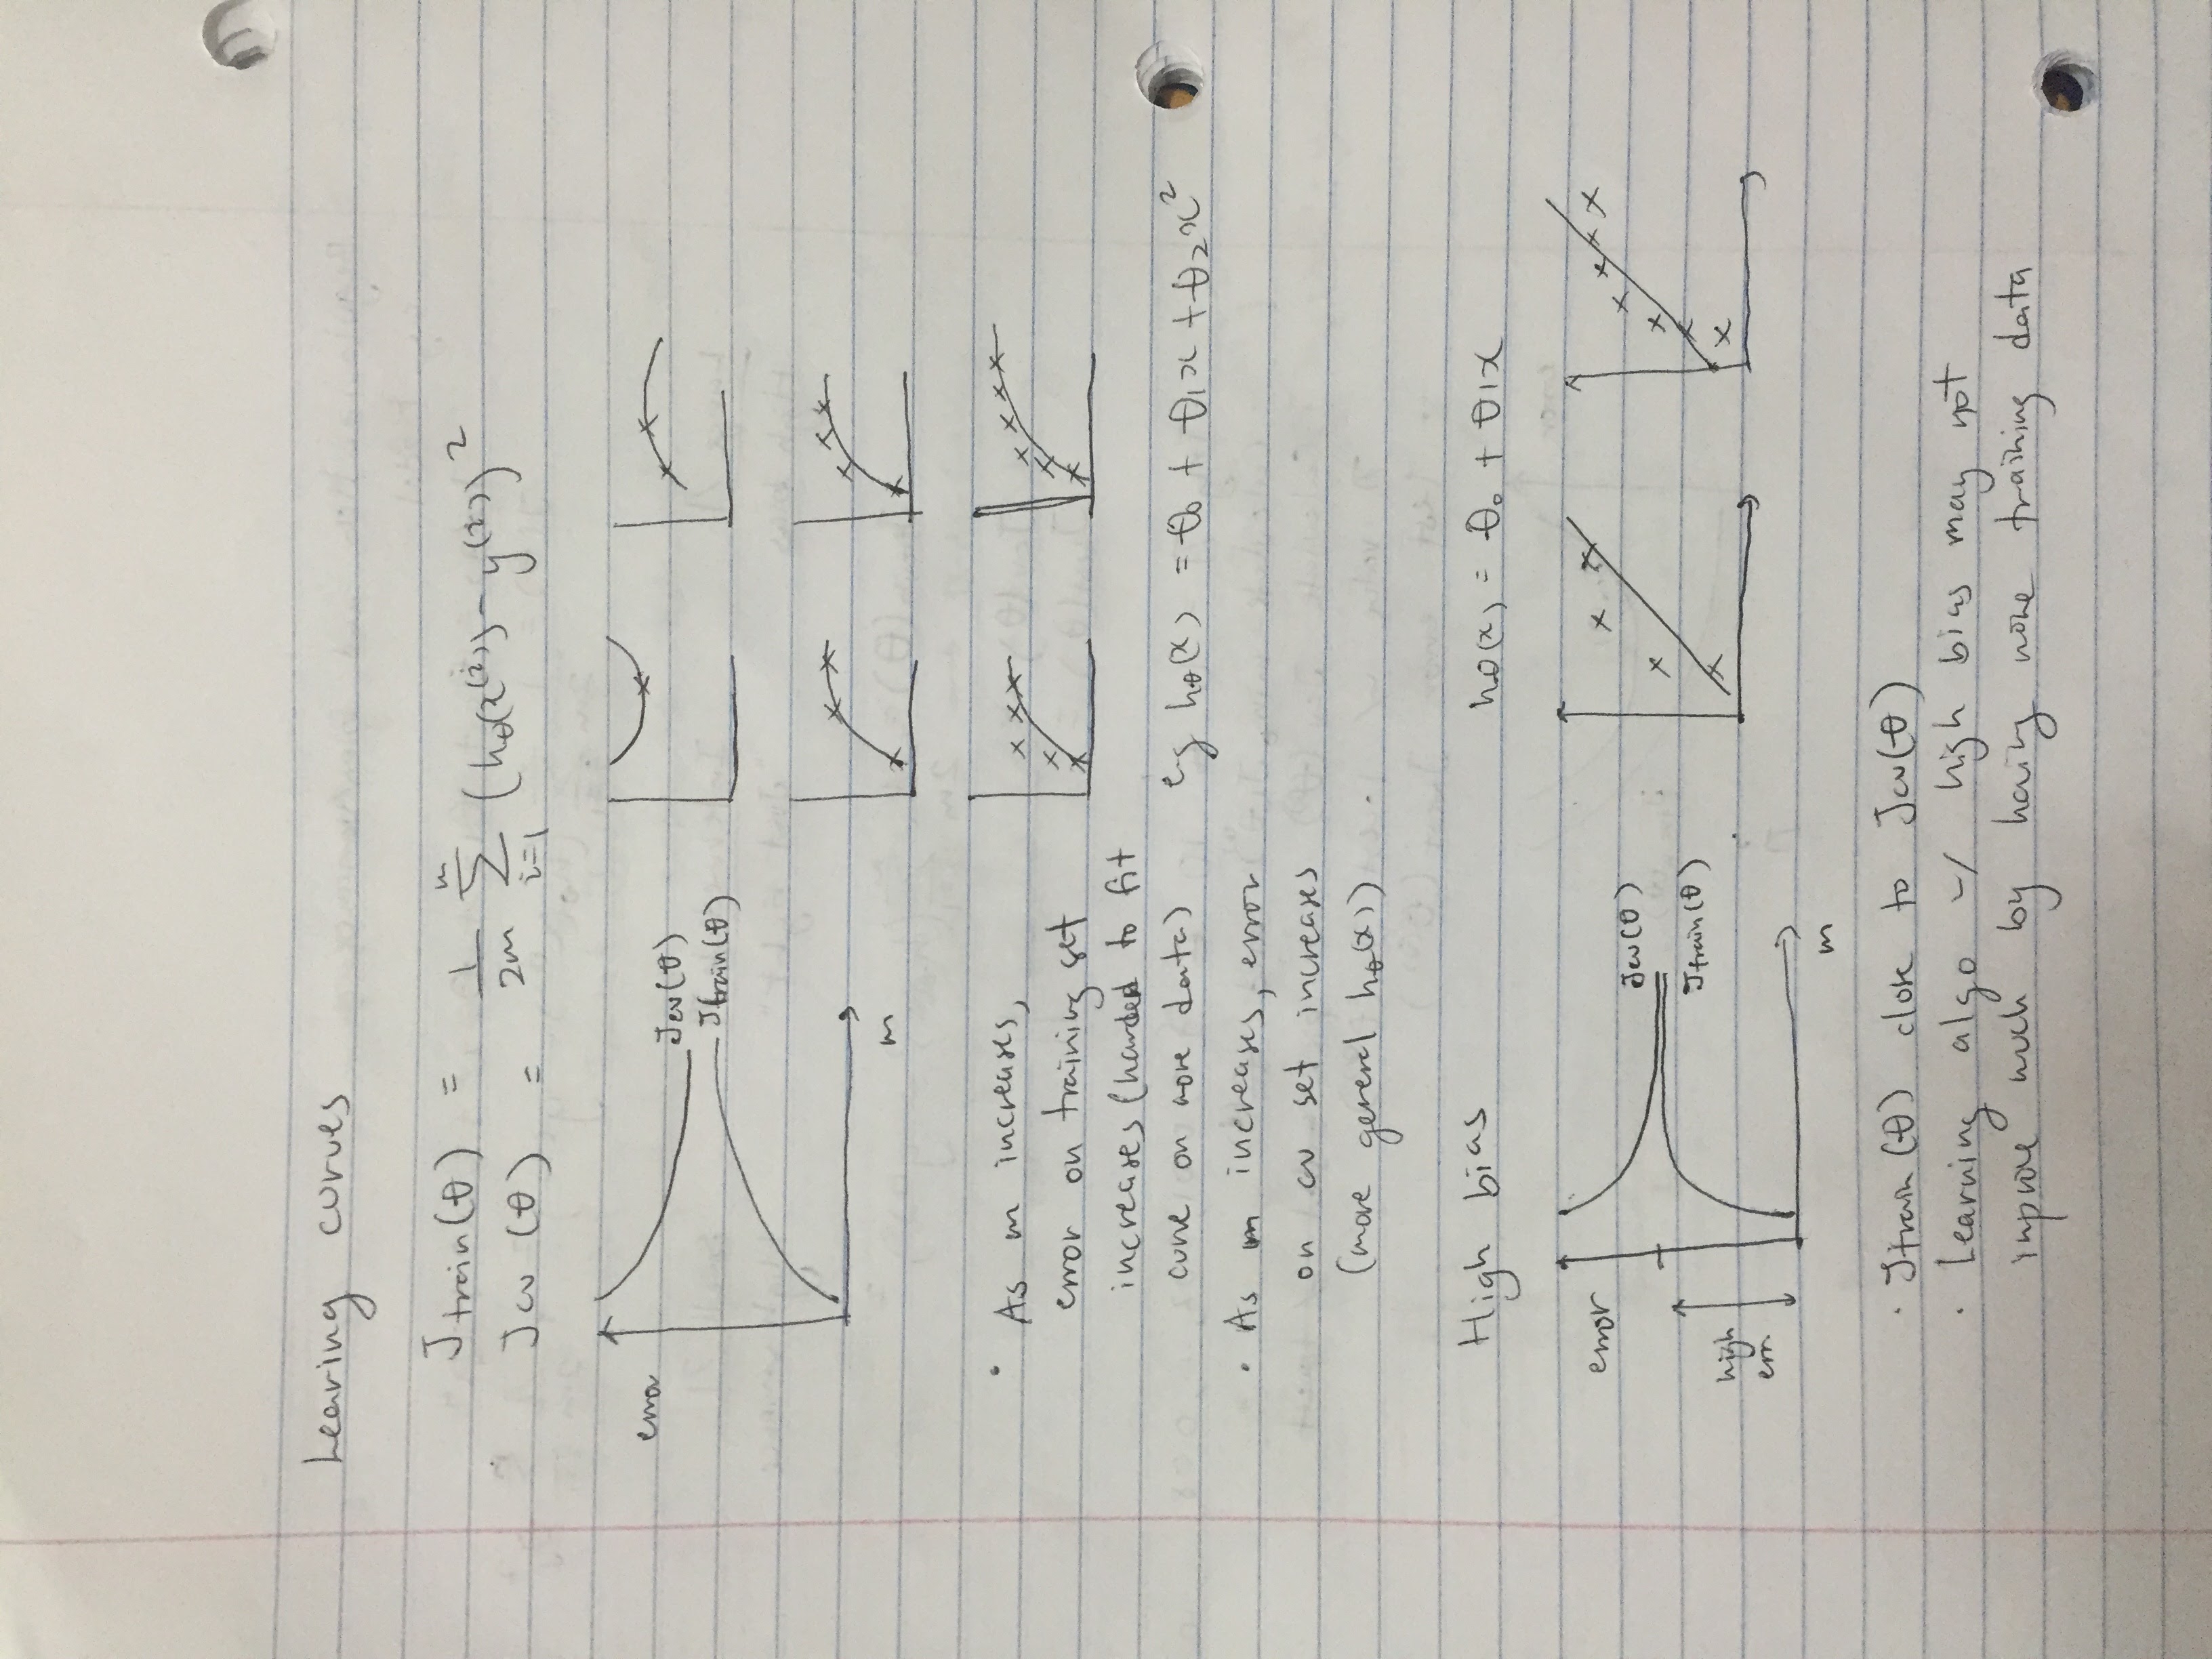 Learing curves
Jtrain(θ) =
Jcv (θ) =
1/2m m Σ i=1 (hθ(x(i)) - y(i))2
error
Jcv(θ)
Jtrain(θ)
m
As m increases,
error on training set
increases (harded to fit
curve on more data)
eg hθ(x) = θ0 + θ1x + θ2x2
As m increases, error
on cv set increases
(more general hθ(x))
High bias
hθ(x) = θ0 + θ1x
error
Jcv(θ)
Jtrain(θ)
high
err.
m
· Jtrain (θ) close to Jcv(θ)
· Learning algo w/ high bias may not
improve much by having more training data